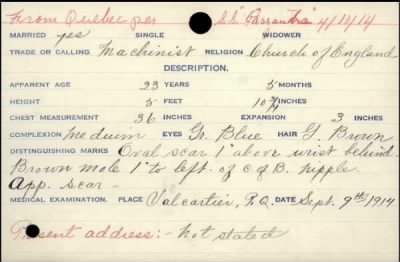 From Quebec per S.S. "Cassandra" 4/10/14
MARRIED yes SINGLE WIDOWER
TRADE OR CALLING Machinist RELIGION Church of England
DESCRIPTION.
APPARENT AGE 23 YEARS 5 MONTHS
HEIGHT 5 FEET 10 3/4 INCHES
CHEST MEASUREMENT 36 INCHES EXPANSION 3 INCHES
COMPLEXION Medium EYES Gr. Blue HAIR G. Brown
DISTINGUISHING MARKS Oval scar 1" above wrist behind.
Brown mole 1" to left of c of B. nipple.
App. scar -
MEDICAL EXAMINATION. PLACE Valcartier, P.Q. DATE Sept. 9th 1914
Present address:- not stated